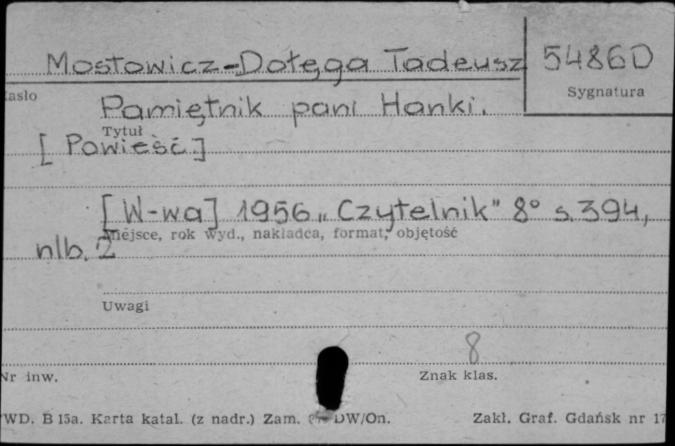 Mostowicz-Dołęga Tadeusz 5486D
Sygnatura
asło
Pamiętnik pani Hanki.
Tytuł
[Powieść]
[W-wa] 1956 „Czytelnik" 8° s. 394,
Miejsce, rok wyd., nakładca, format, objętość
nlb. 2
Uwagi
8
Nr inw. Znak klas.
WD. B 15a. Karta katal. (z nadr.) Zam. DW/On. Zakł. Graf. Gdańsk nr 17